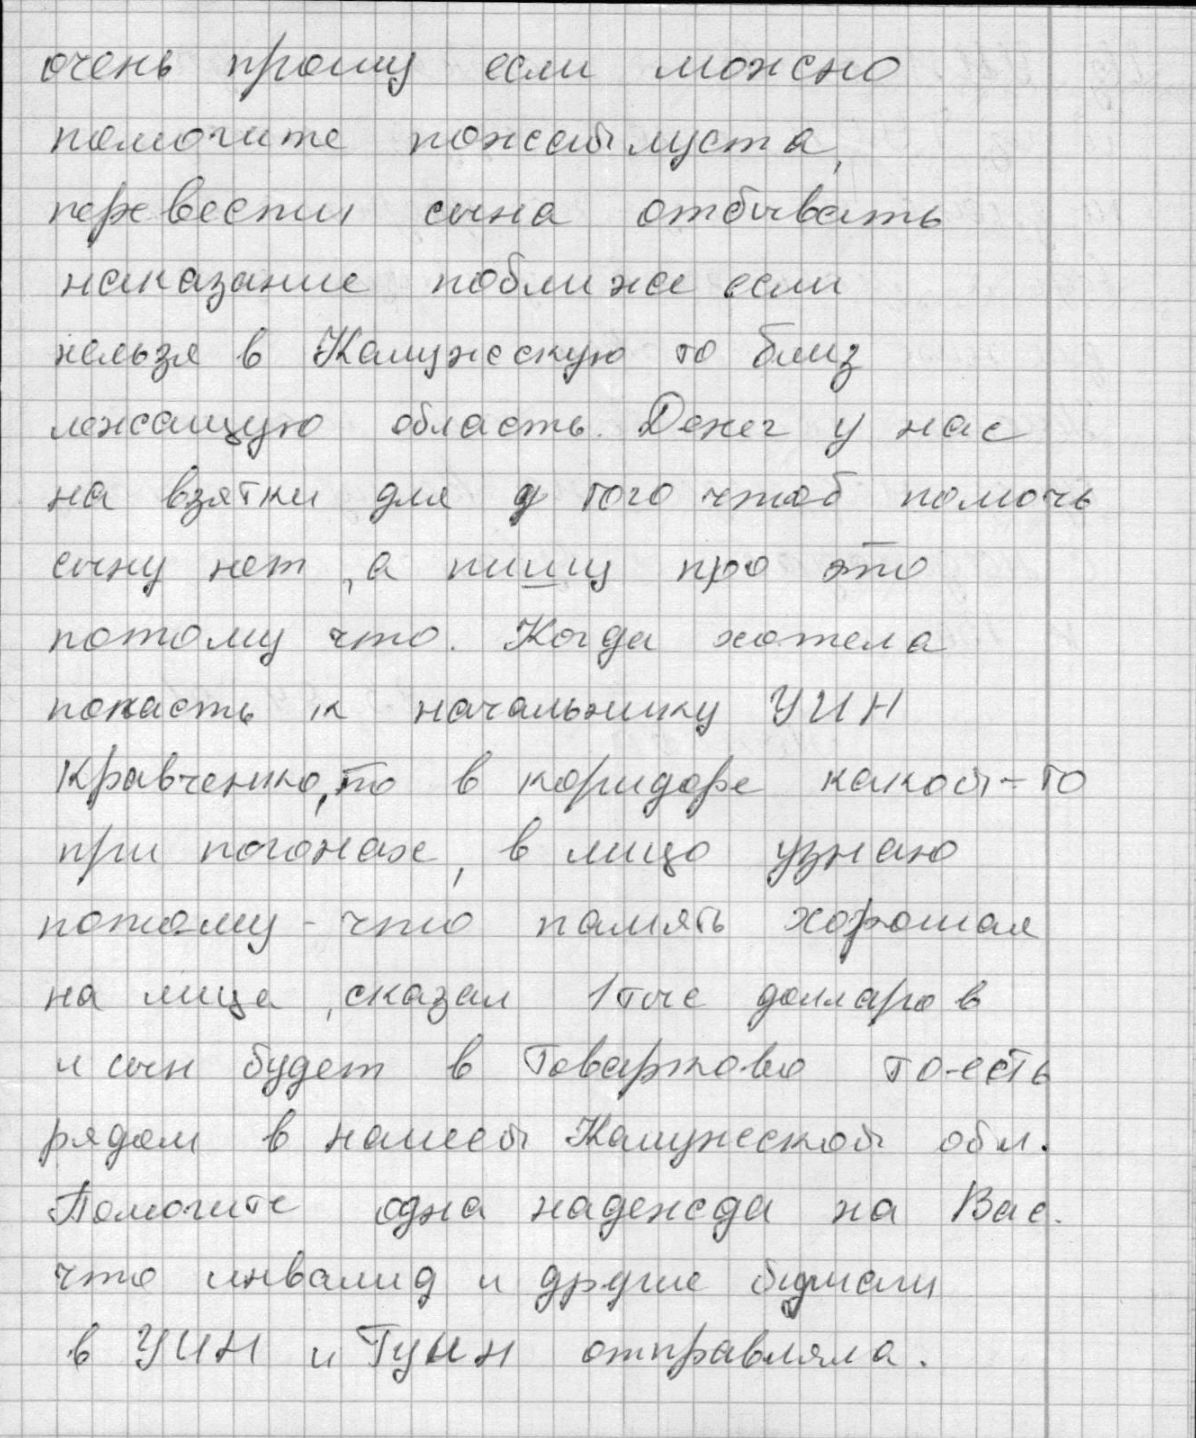 очень прошу если можно
помогите пожайлуста,
перевести сына отбывать
наказание поближе если
нельзя в Калужскую то близ
лежащую область. Денег у нас
на взятки для того чтоб помочь
сыну нет, а пишу про это
потому что. Когда хотела
попасть к начальнику УИН
Кравченко, то в коридоре какой-то
при погонах, в лицо узнаю
потому-что память хорошая
на лица, сказал 1 тыс долларов
и сын будет в Товарково то-есть
рядом в нашей Калужской обл.
Помогите одна надежда на Вас.
что инвалид и другие бумаги
в УИН и Гуин отправляла.